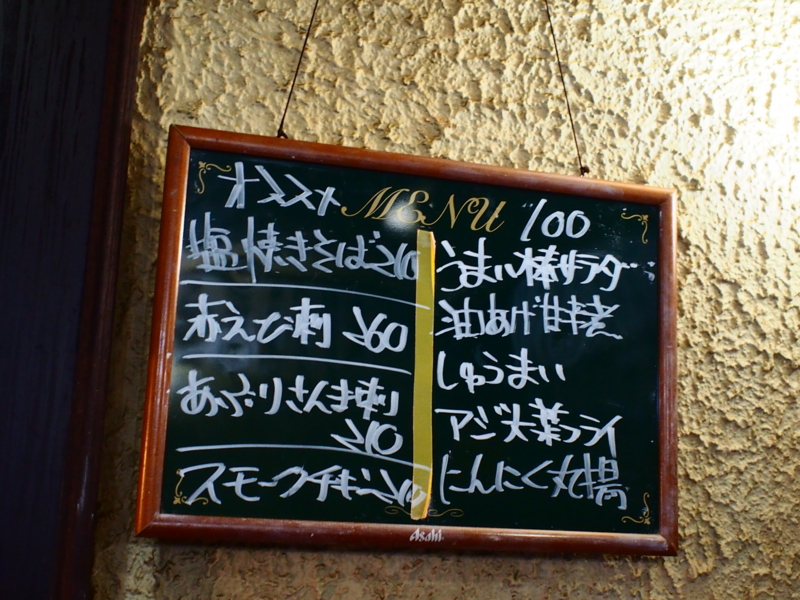 オススメ MENU 100
塩焼きそば 210
赤えび刺 260
あぶりさんま刺
210
スモークチキン 210
うまい棒サラダ
油あげ甘辛煮
しゅうまい
アジ大葉フライ
にんにく丸揚
Asahi